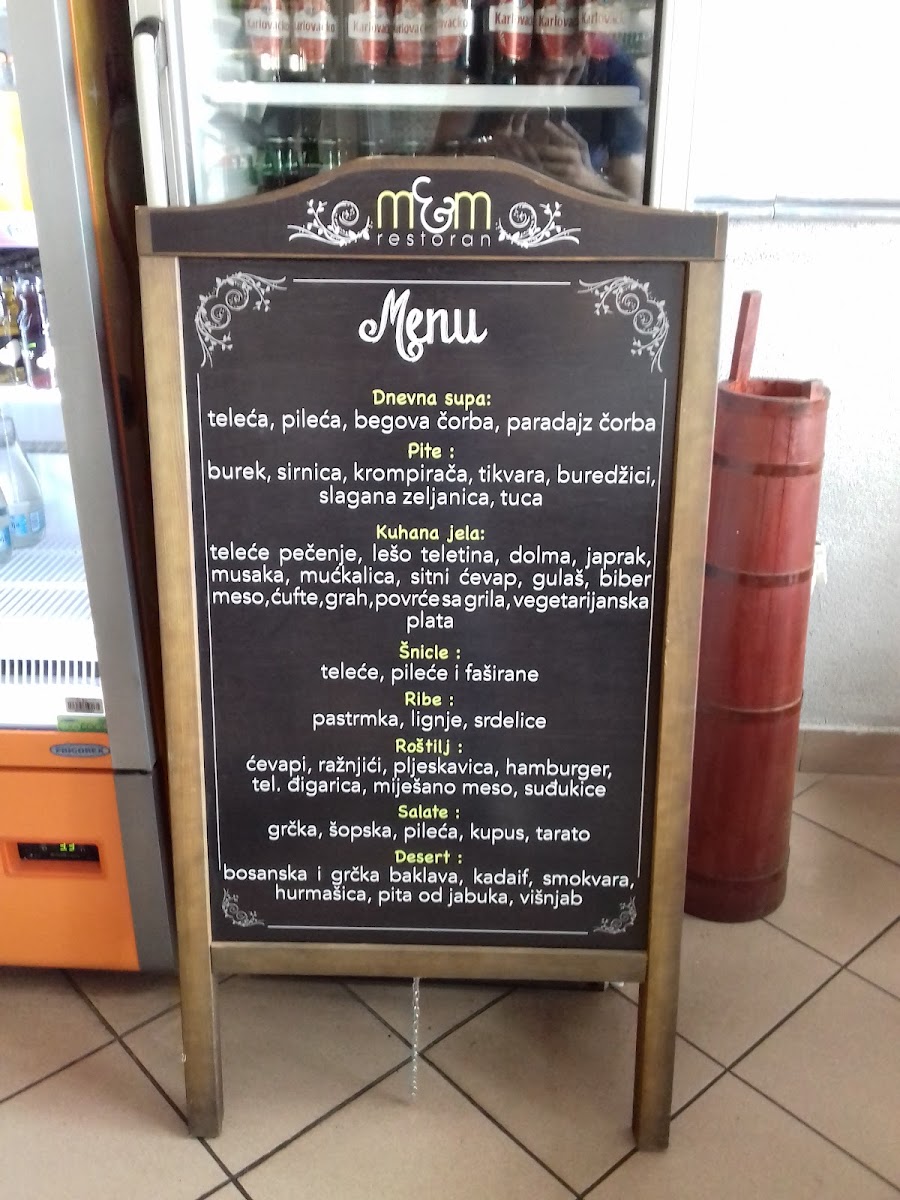 Karlovačko
Karlovačko
m&m
restoran
Menu
Dnevna supa:
teleća, pileća, begova čorba, paradajz čorba
Pite :
burek, sirnica, krompirača, tikvara, buredžici,
slagana zeljanica, tuca
Kuhana jela:
teleće pečenje, lešo teletina, dolma, japrak,
musaka, mućkalica, sitni ćevap, gulaš, biber
meso, ćufte, grah, povrće sa grila, vegetarijanska
plata
Šnicle :
teleće, pileće i faširane
Ribe :
pastrmka, lignje, srdelice
Roštilj :
ćevapi, ražnjići, pljeskavica, hamburger,
tel. đigarica, miješano meso, suđukice
Salate :
grčka, šopska, pileća, kupus, tarato
Desert :
bosanska i grčka baklava, kadaif, smokvara,
hurmašica, pita od jabuka, višnjab
FRIGOREX
33